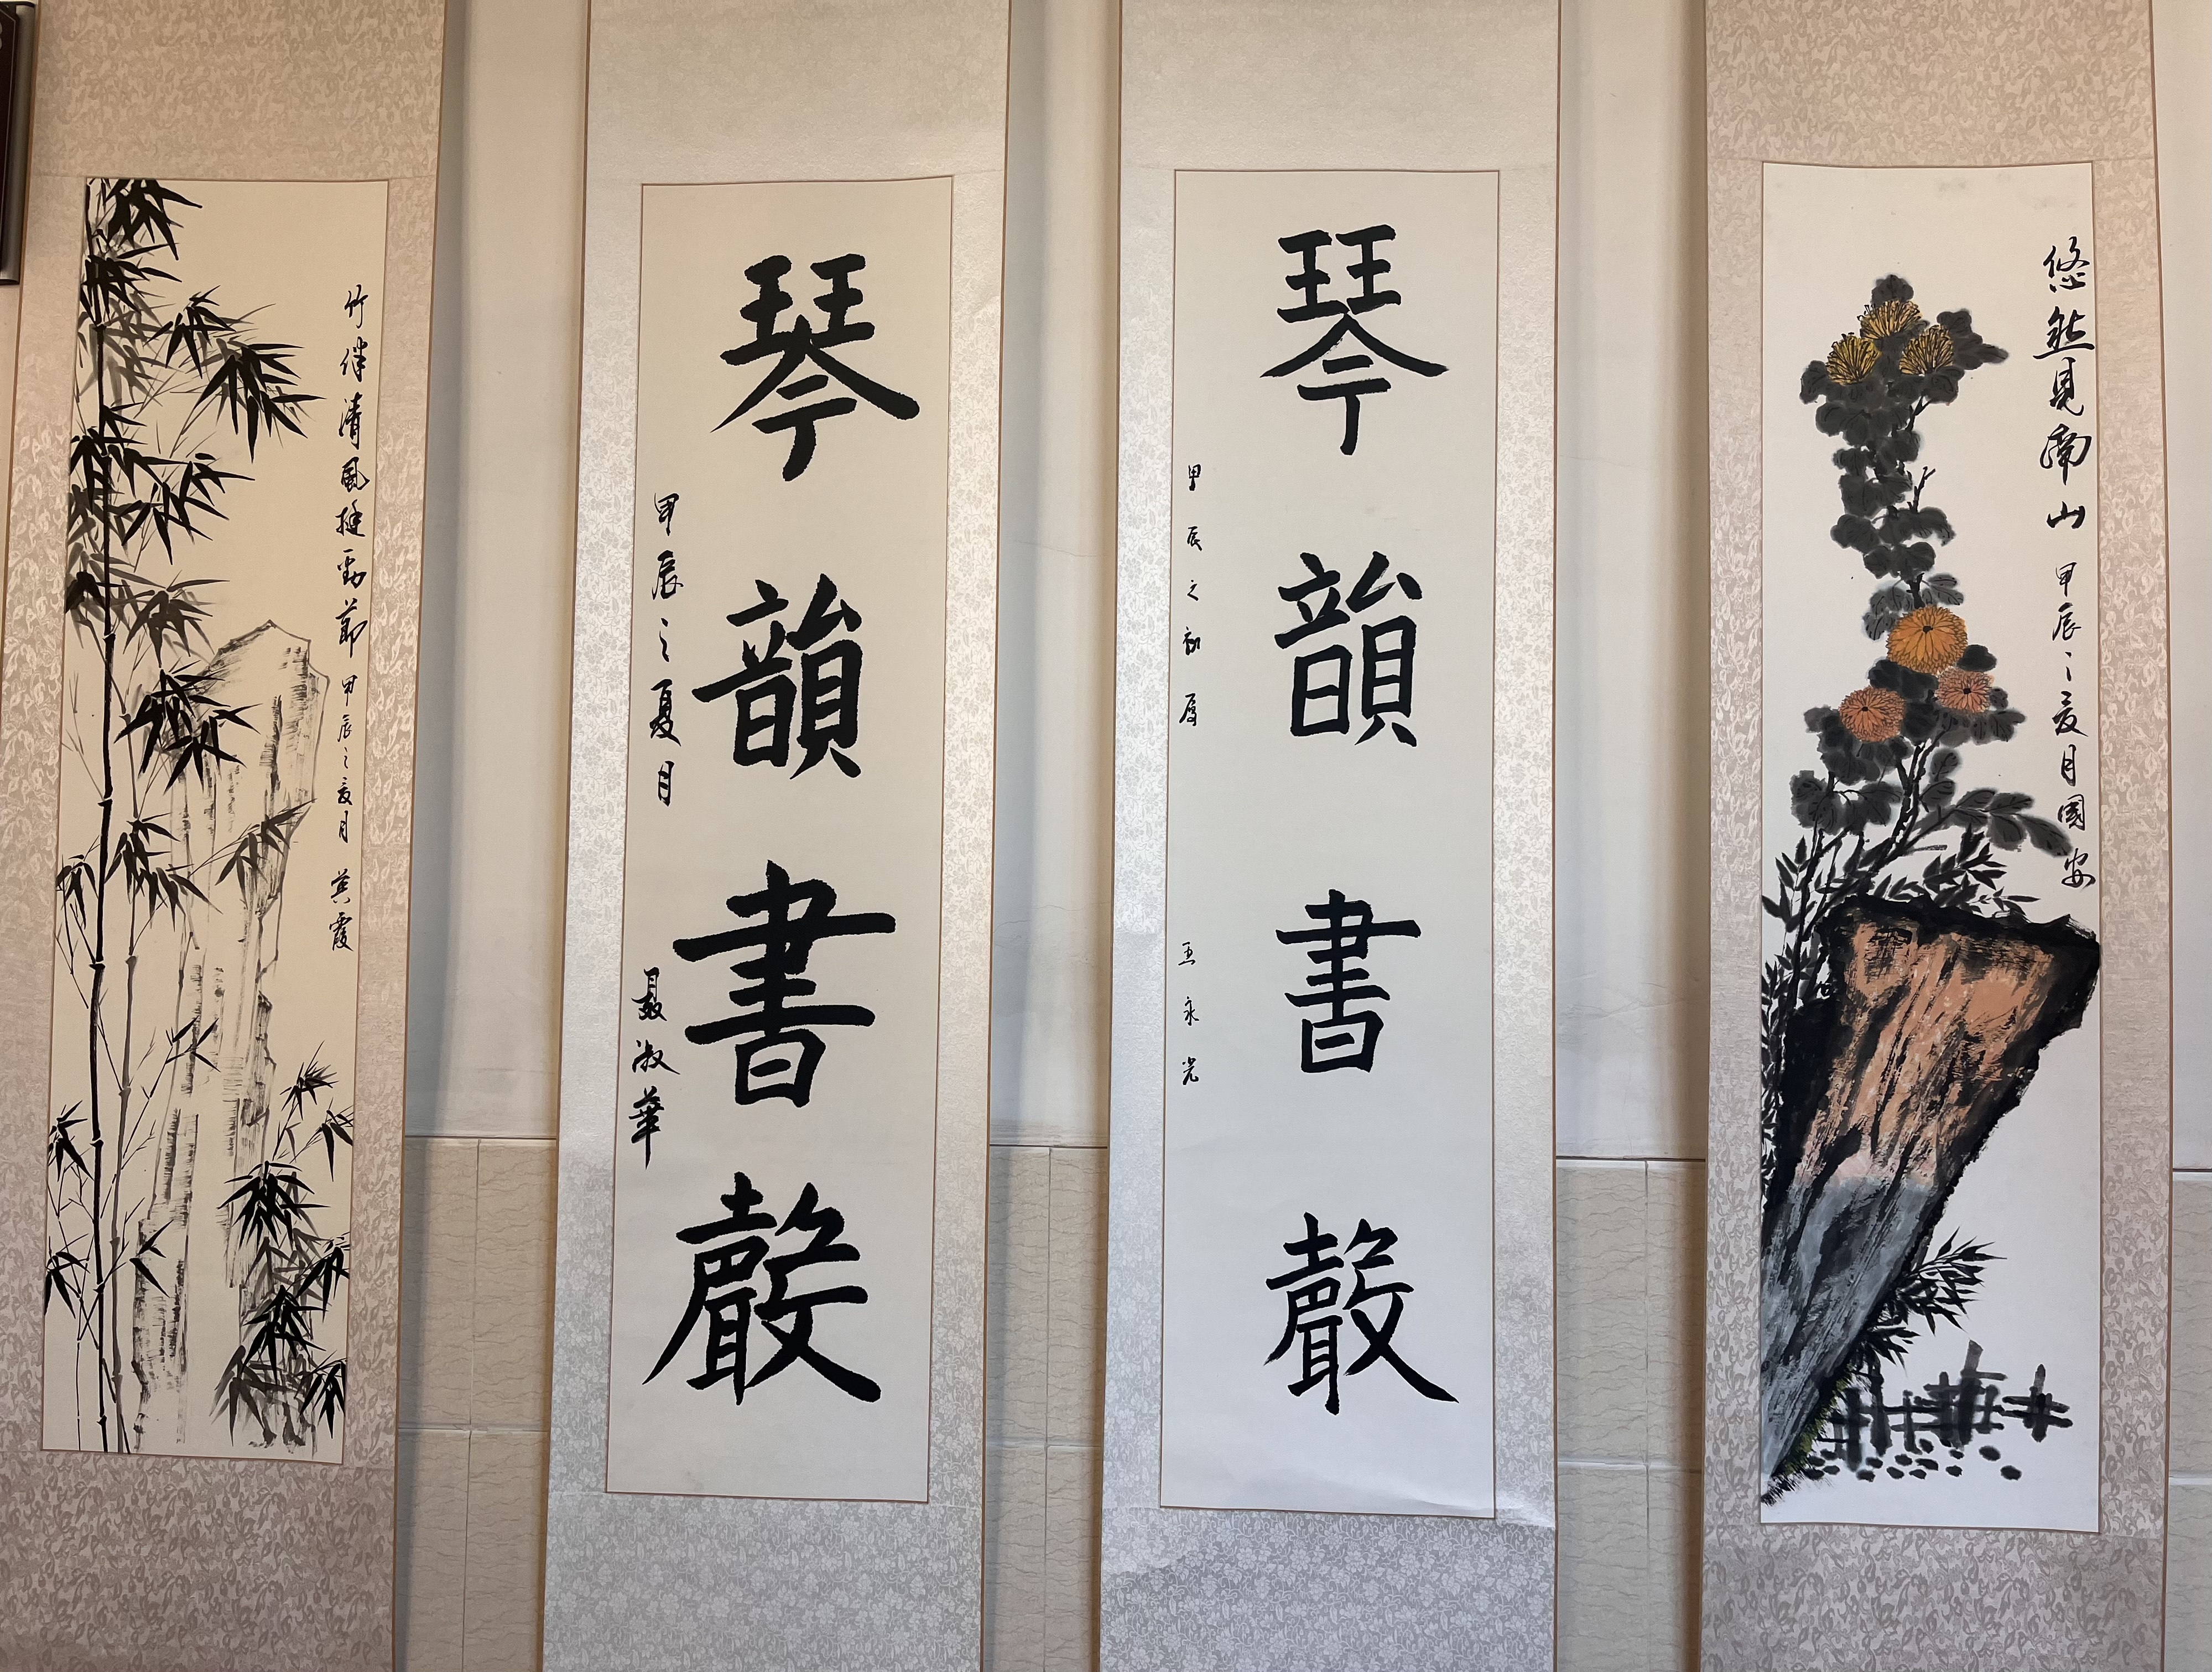 竹伴清風挺勁節 甲辰之夏月 英霞
琴韻書聲
甲辰之夏月 聂淑華
琴韻書聲
甲辰之初夏 王永光
悠然見南山 甲辰之夏月國安